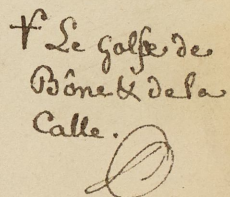 † Le Golfe de
Bône & de la
Calle.